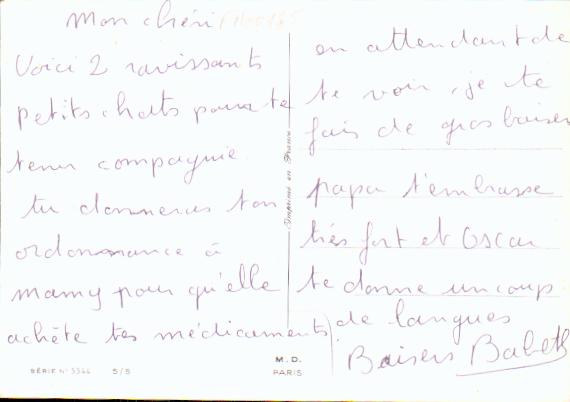 Mon chéri
Voici 2 ravissants
petits chats pour te
tenir compagnie
tu donneras ton
ordonnance à
mamy pour qu'elle
achète tes médicaments
en attendant de
te voir, je te
fais de gros baisers
papa t'embrasse
très fort et Oscar
te donne un coup
de langues
Baisers Babeth
Imprimé en France
SÉRIE N° 5544 5/5
M.D.
PARIS